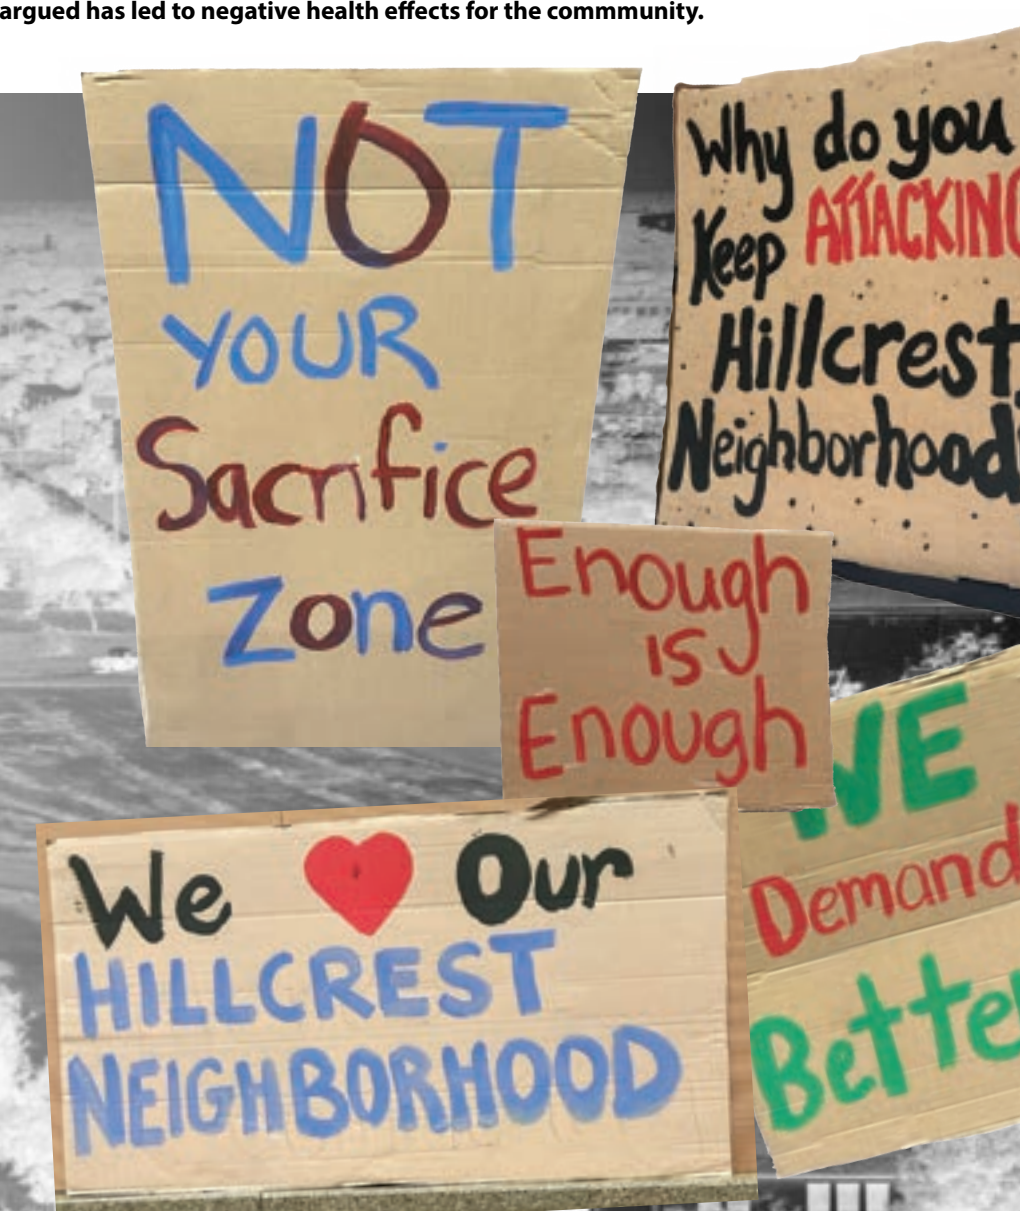 argued has led to negative health effects for the commmunity.
NOT
YOUR
Sacrifice
Zone
Why do you
Keep ATTACKING
Hillcrest
Neighborhood
Enough
is
Enough
WE
Demand
Better
We Our
HILLCREST
NEIGHBORHOOD